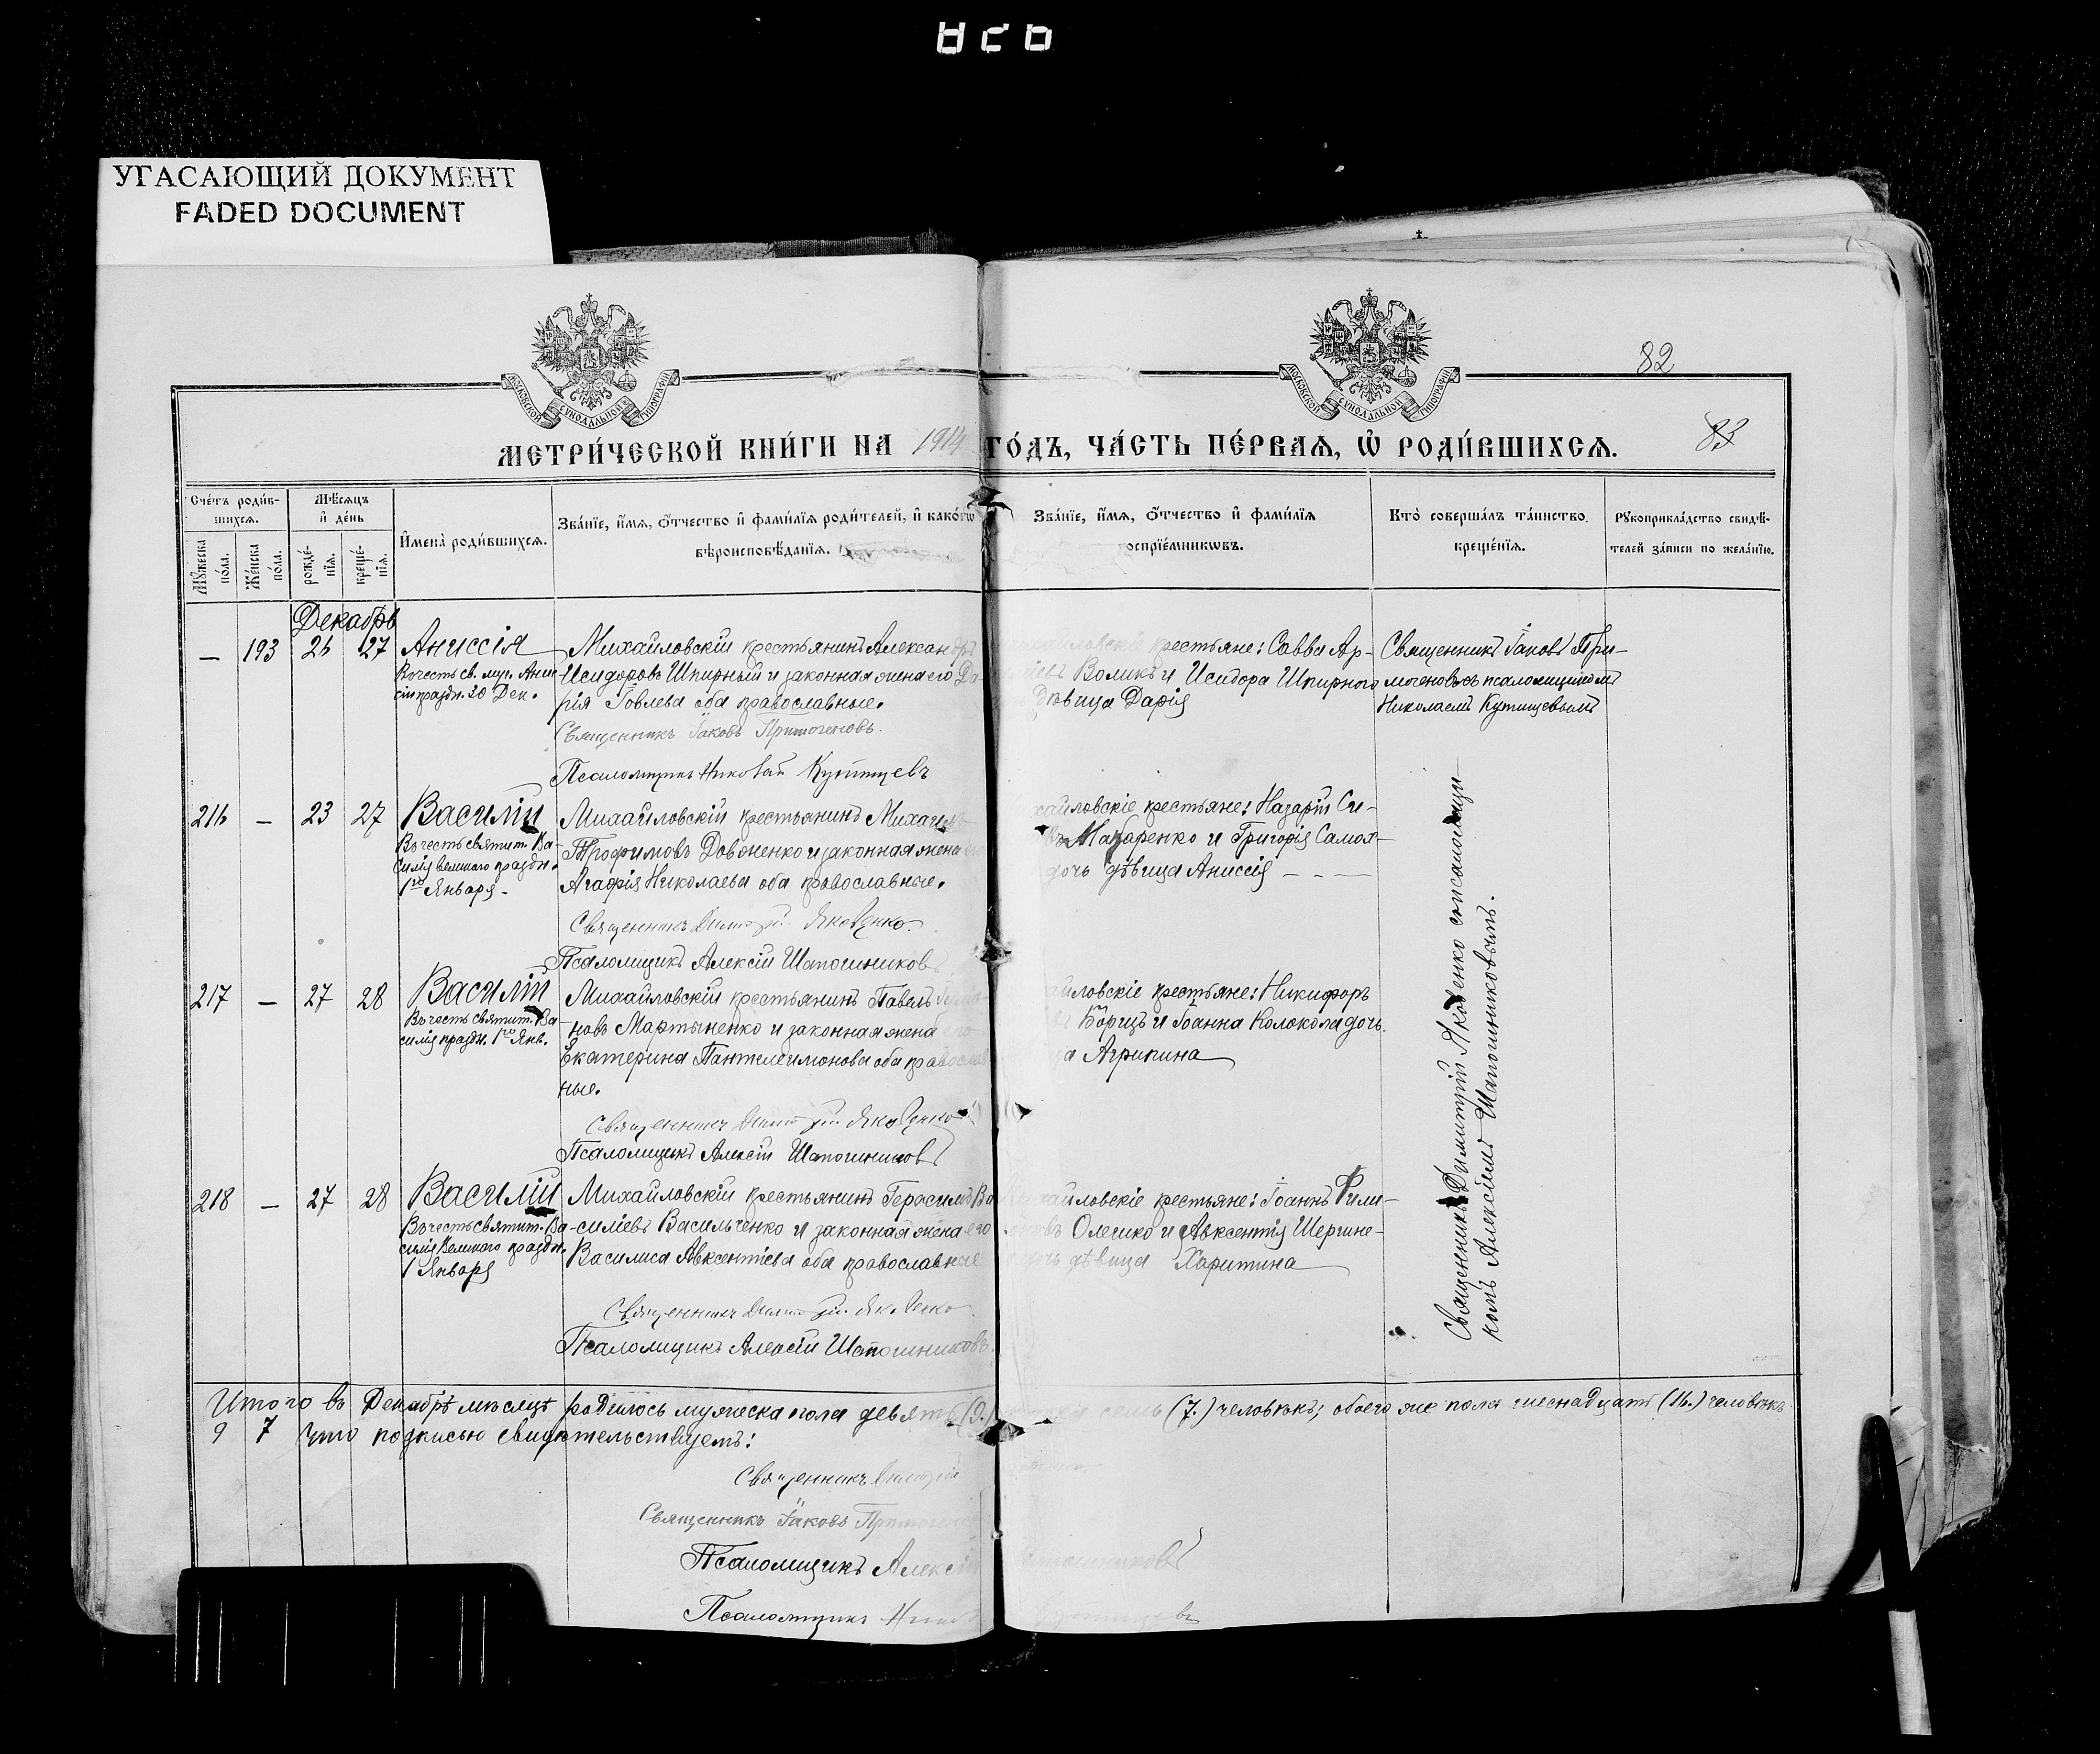 УГАСАЮЩИЙ ДОКУМЕНТ
FADED DOCUMENT
МОСКОВСКОЙ СУНОДАЛЬНОЙ ТИПОГРАФІИ
МОСКОВСКОЙ СУНОДАЛЬНОЙ ТИПОГРАФІИ
82
МЕТРИ́ЧЕСКОЙ КНИ́ГИ НА 1914 ГО́ДЪ, ЧА́СТЬ ПЕ́РВАѦ, Ѡ҆ РОДИ́ВШИХСѦ.
Сче́тъ роди́в-
шихсѧ.
Мꙋ́жеска по́ла.
Же́нска по́ла.
Мѣ́сѧцъ
и҆ де́нь
рожде́-
нїѧ.
креще́-
нїѧ.
И҆мена̀ роди́вшихсѧ.
Зва́нїе, и҆́мѧ, ѻ҆́тчество и҆ фами́лїѧ роди́телей, и҆ како́гѡ
вѣроисповѣ́данїѧ.
Зва́нїе, и҆́мѧ, ѻ҆́тчество и҆ фами́лїѧ
воспрїе́мникѡвъ.
Кто̀ соверша́лъ та́инство
креще́нїѧ.
Рꙋкоприкла́дство свидѣ́-
телей за́писи по жела́нїю.
Декабрь
— 193 26 27 Аниссія
Въ честь св. муч. Анис-
сіи праздн. 30 Дек.
Михайловскій крестьянинъ Александръ
Исидоровъ Шпирный и законная жена его Да-
рія Іовлева оба православные.
Священникъ Іаковъ Примогеновъ.
Псаломщикъ Николай Кутищевъ
крестьяне: Савва Ар-
Воликъ и Исидора Шпирного
дѣвица Дарія
Священникъ Іаковъ При-
могеновъ съ псаломщикомъ
Николаемъ Кутищевымъ
216 — 23 27 Василій
Въ честь святит. Ва-
силія великого праздн.
1го Января.
Михайловскій крестьянинъ Михаилъ
Трофимовъ Довженко и законная жена его
Агафія Николаева оба православные.
Священникъ Димитрій Яковенко.
Псаломщикъ Алексій Шапошниковъ
Михайловскіе крестьяне: Назарій Си-
Макаренко и Григорія Самох-
дочь дѣвица Аниссія
217 — 27 28 Василій
Въ честь святит. Ва-
силія праздн. 1го Янв.
Михайловскій крестьянинъ Павелъ
новъ Мартыненко и законная жена
Екатерина Пантелеимонова оба православ-
ные.
Священникъ Димитрій Яковенко
Псаломщикъ Алексій Шапошниковъ
крестьяне: Никифоръ
Борщъ и Іоанна Колокола дочь
Агрипина
218 — 27 28 Василій
Въ честь святит. Ва-
силія Великого праздн.
1 Января
Михайловскій крестьянинъ Герасимъ Ва-
силіевъ Васильченко и законная жена его
Василиса Авксентіева оба православные
Священникъ Димитрій Яковенко.
Псаломщикъ Алексій Шапошниковъ.
Михайловскіе крестьяне: Іоаннъ Фили-
Олешко и Авксентія Шергине-
дочь дѣвица Харитина
Священникъ Димитрій Яковенко съ псаломщи-
комъ Алексіемъ Шапошниковымъ.
Итого въ Декабрѣ мѣсяцѣ родилось мужеска пола девять (9.) семь (7.) человѣкъ; обоего же пола шеснадцать (16.) человѣкъ
9 7 что подписью свидѣтельствуемъ:
Священникъ Димитрій
Священникъ Іаковъ Примогеновъ
Псаломщикъ Алексій Шапошниковъ
Псаломщикъ